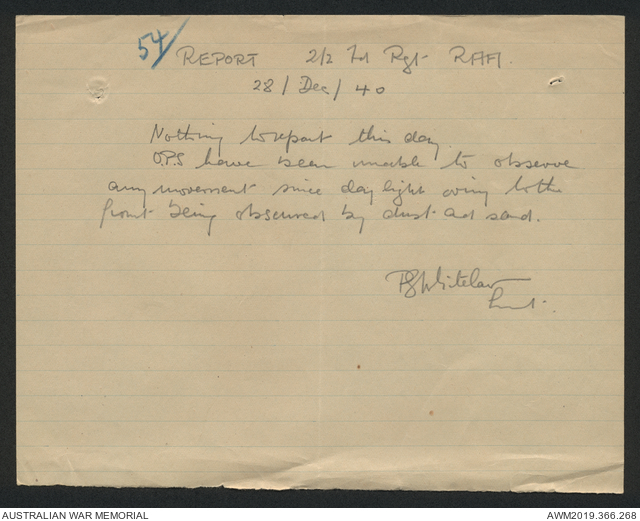 54/ REPORT 2/2 Fd Rgt RAA.
28 / Dec / 40
Nothing to report this day.
O.P.S have been unable to observe
any movement since day light owing to the
front being obscured by dust and sand.
Whitelaw
Lieut.
AUSTRALIAN WAR MEMORIAL
AWM2019.366.268